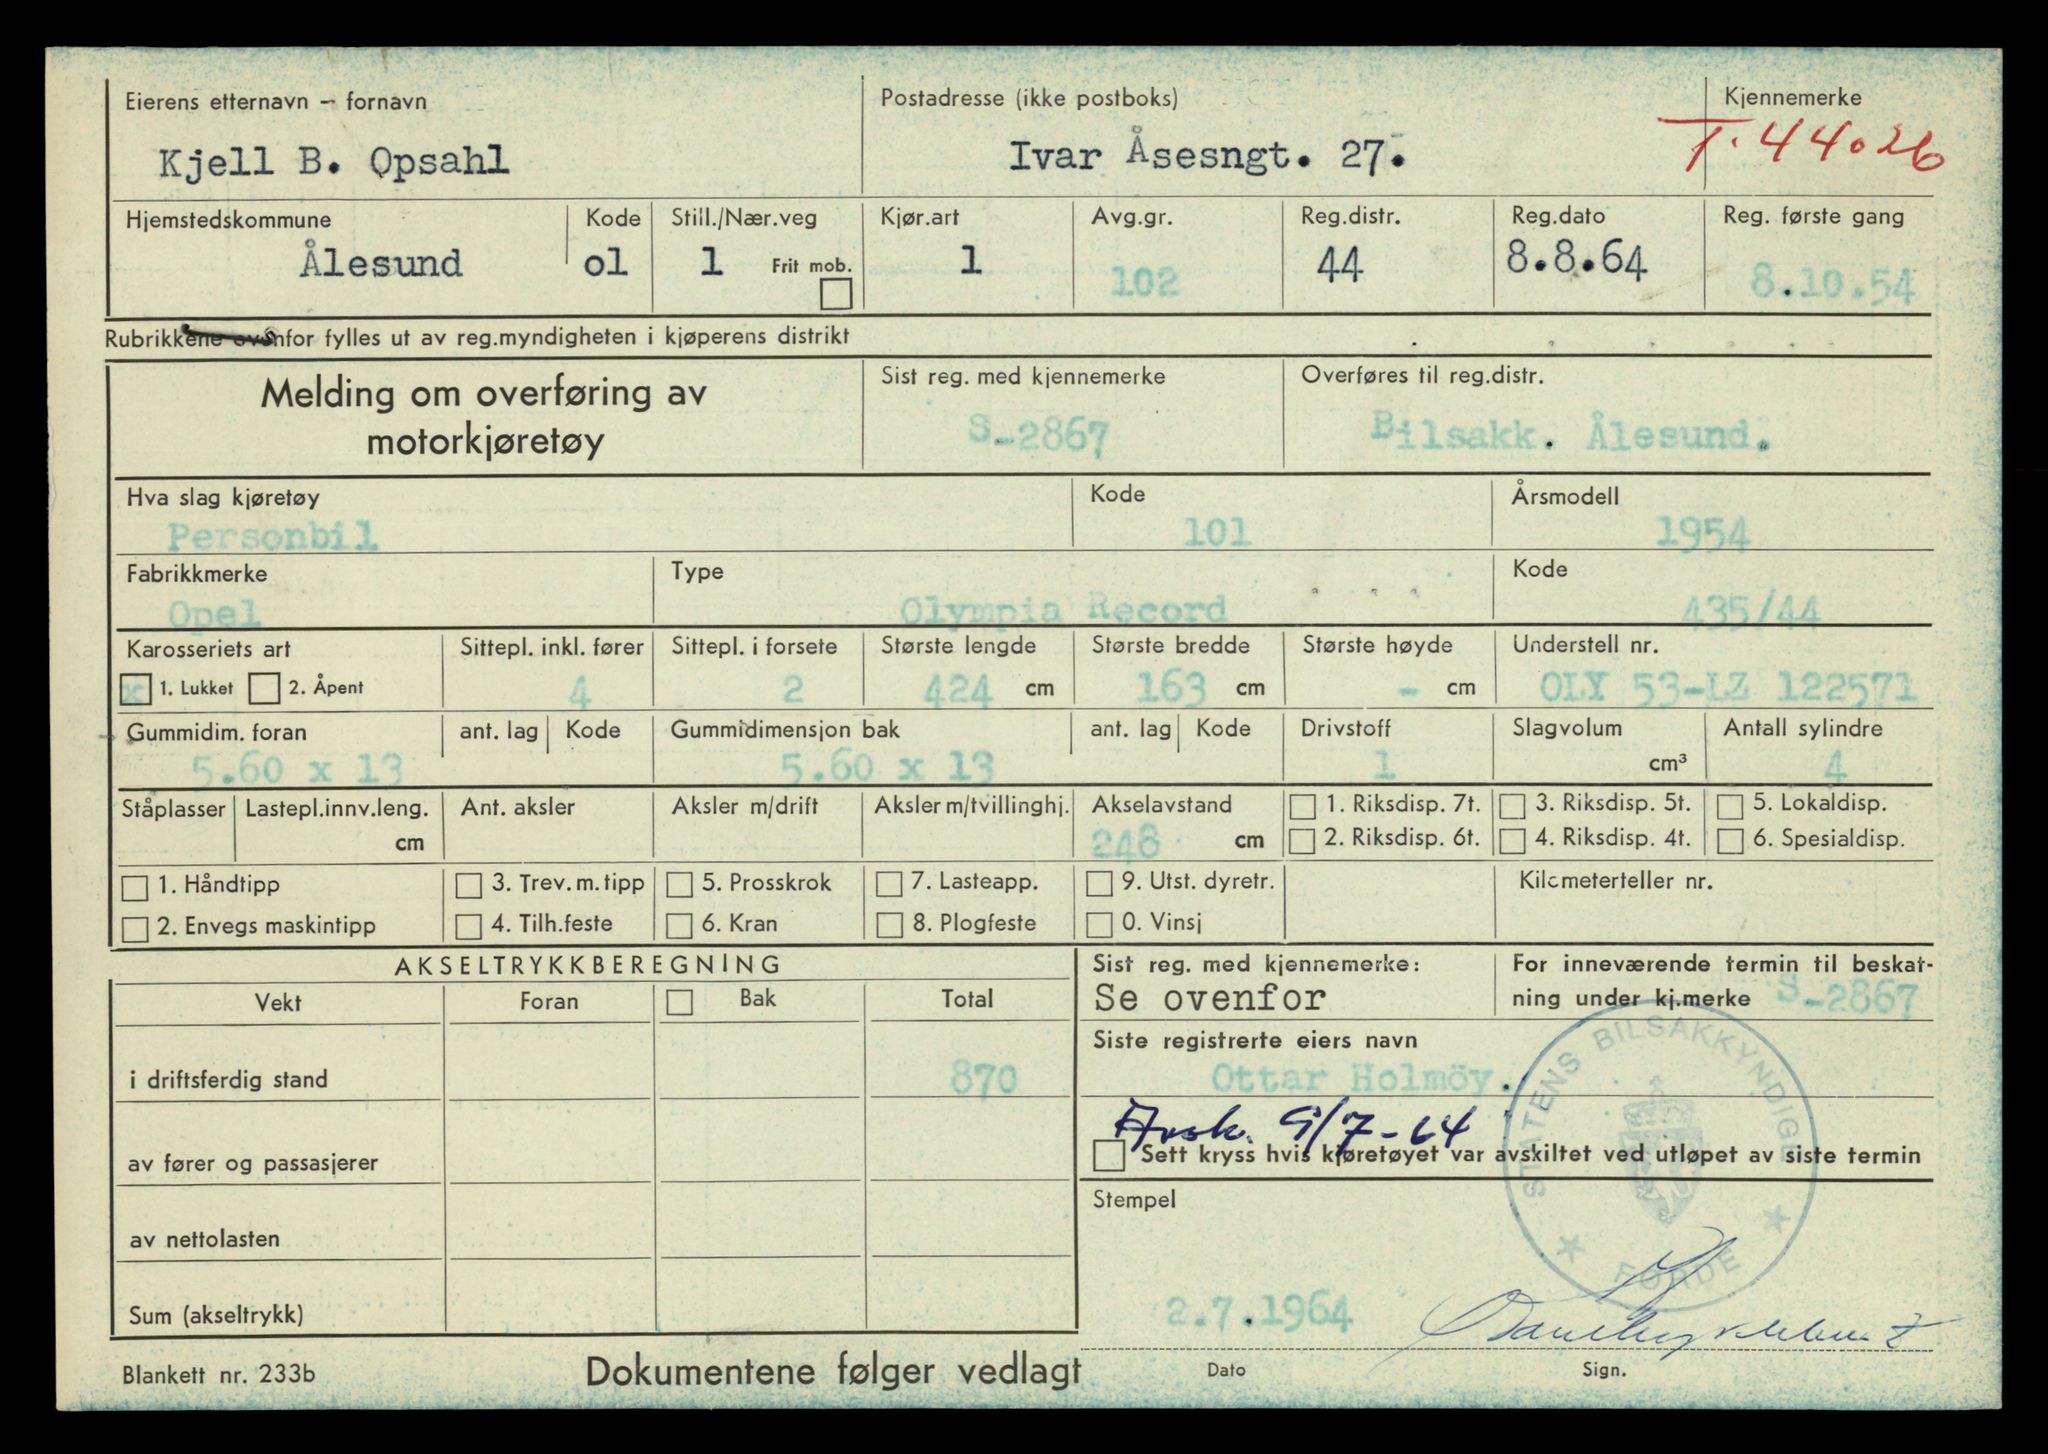 Eierens etternavn - fornavn
Kjell B. Opsahl
Postadresse (ikke postboks)
Ivar Åsesngt. 27.
Kjennemerke
T. 44026
Hjemstedskommune
Ålesund
Kode
01
Still./Nær.veg
1
Frit mob.
Kjør.art
1
Avg.gr.
102
Reg.distr.
44
Reg.dato
8.8.64
Reg. første gang
8.10.54
Rubrikkene ovenfor fylles ut av reg.myndigheten i kjøperens distrikt
Melding om overføring av
motorkjøretøy
Sist reg. med kjennemerke
S-2867
Overføres til reg.distr.
Bilsakk. Ålesund.
Hva slag kjøretøy
Personbil
Kode
101
Årsmodell
1954
Fabrikkmerke
Opel
Type
Olympia Record
Kode
435/44
Karosseriets art
x 1. Lukket 2. Åpent
Sittepl. inkl. fører
4
Sittepl. i forsete
2
Største lengde
424 cm
Største bredde
163 cm
Største høyde
- cm
Understell nr.
OLY 53-LZ 122571
Gummidim. foran
5.60 x 13
ant. lag
Kode
Gummidimensjon bak
5.60 x 13
ant. lag
Kode
Drivstoff
1
Slagvolum
cm³
Antall sylindre
4
Ståplasser
Lastepl.innv.leng.
cm
Ant. aksler
Aksler m/drift
Aksler m/tvillinghj.
Akselavstand
248 cm
1. Riksdisp. 7t.
2. Riksdisp. 6t.
3. Riksdisp. 5t.
4. Riksdisp. 4t.
5. Lokaldisp.
6. Spesialdisp.
1. Håndtipp
2. Envegs maskintipp
3. Trev. m. tipp
4. Tilh.feste
5. Prosskrok
6. Kran
7. Lasteapp.
8. Plogfeste
9. Utst. dyretr.
0. Vinsj
Kilometerteller nr.
AKSELTRYKKBEREGNING
Vekt
Foran
Bak
Total
i driftsferdig stand
870
av fører og passasjerer
av nettolasten
Sum (akseltrykk)
Sist reg. med kjennemerke:
Se ovenfor
For inneværende termin til beskat-
ning under kj.merke S-2867
Siste registrerte eiers navn
Ottar Holmöy.
Avsk. 9/7-64
Sett kryss hvis kjøretøyet var avskiltet ved utløpet av siste termin
Stempel
STATENS BILSAKKYNDIGE
FØRDE
2.7.1964
Dato
Sign.
Blankett nr. 233b
Dokumentene følger vedlagt